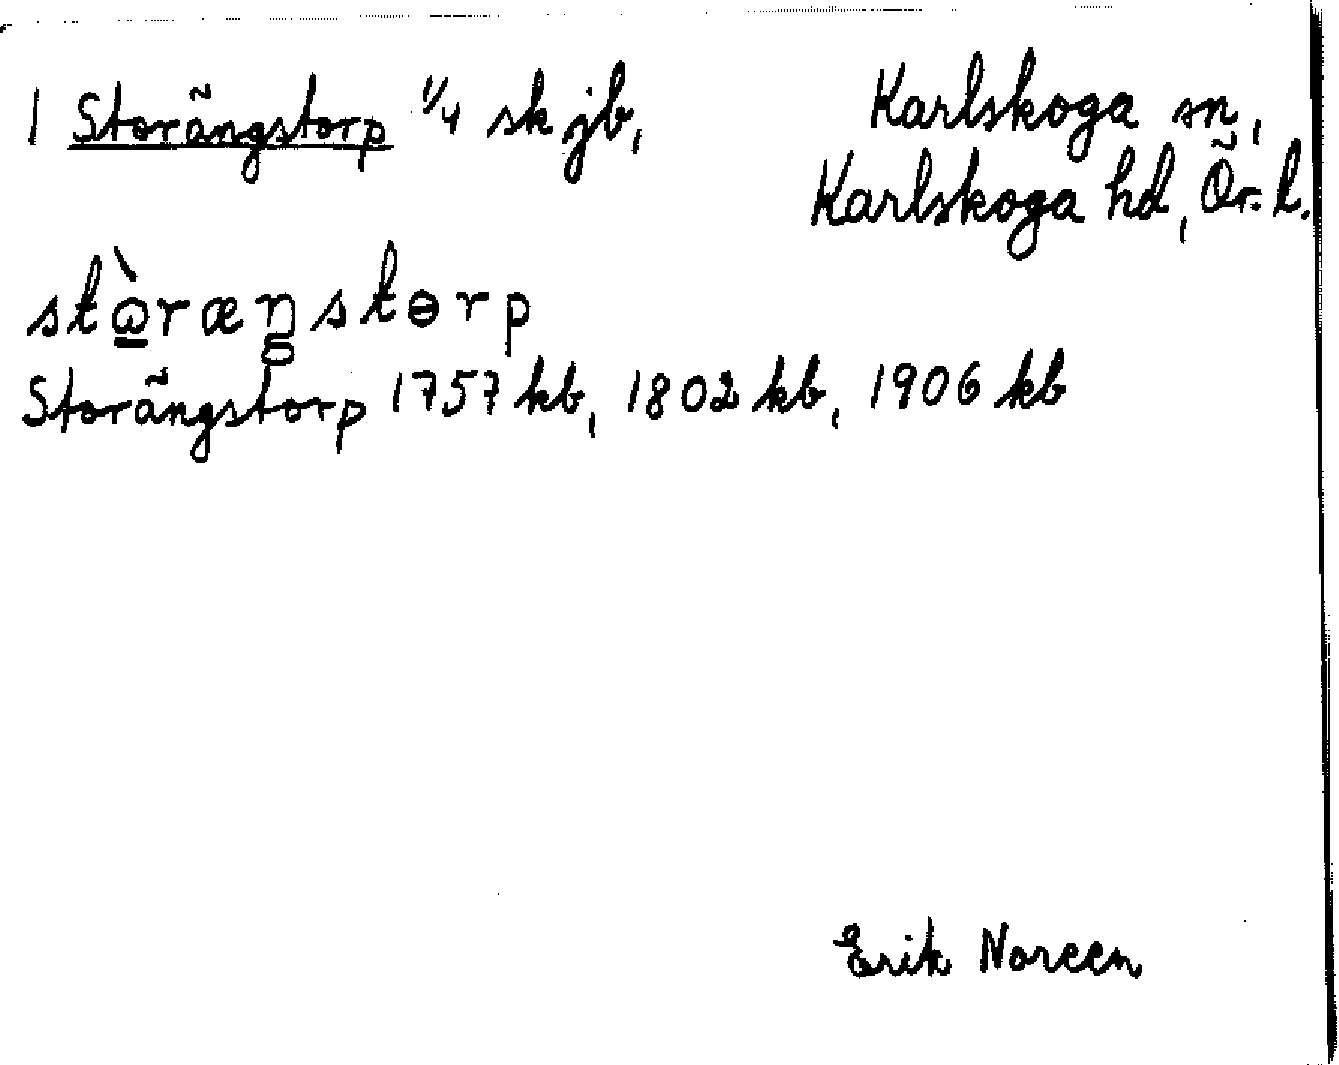 1 Storängstorp 1/4 sk jb, Karlskoga sn,
Karlskoga hd, Ör. l.
stὼ̲ræŋstɵrp
Storängstorp 1757 kb, 1802 kb, 1906 kb
Erik Noreen